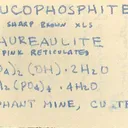 UCOPHOSPHITE
SHARP BROWN XLS
HUREAULITE
PINK RETICULATED
)₂(OH)·2H₂O
₂(PO₄)₄·4H₂O
PHANT MINE, CU